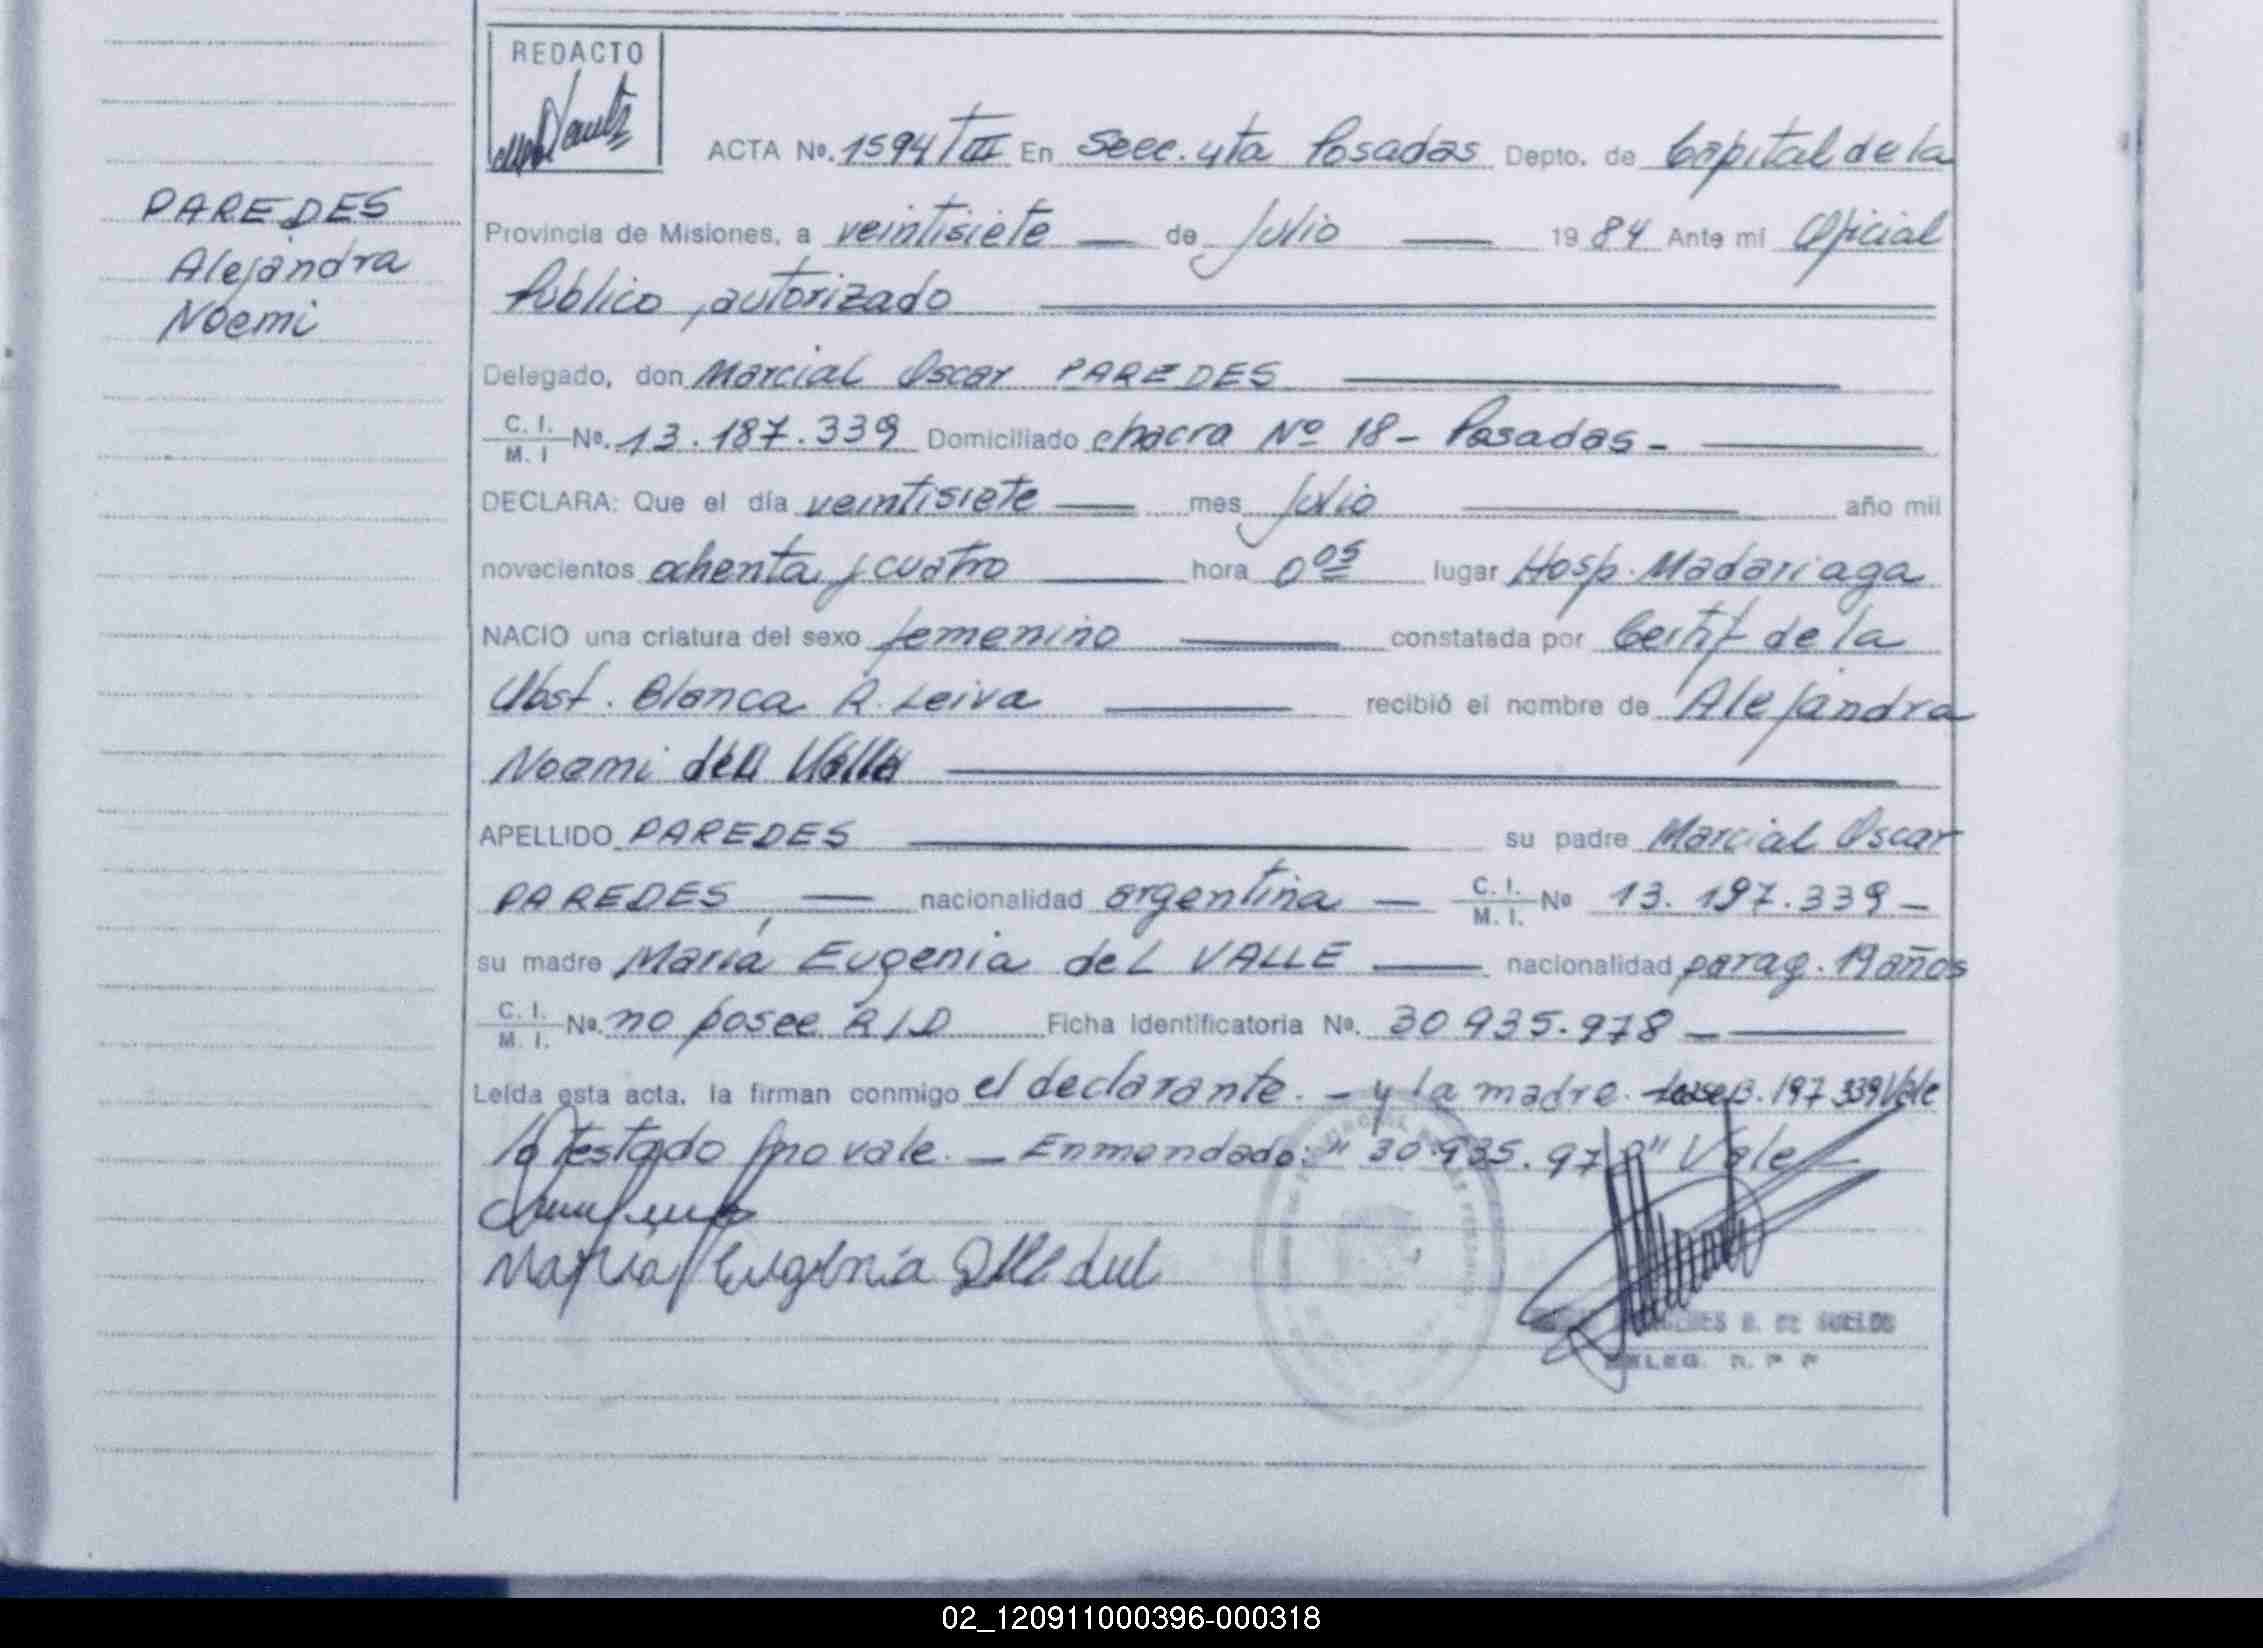 REDACTO
ACTA Nº. 1594 T III En Secc. 4ta Posadas Depto. de Capital de la
PAREDES
Alejandra
Noemi
Provincia de Misiones, a veintisiete — de Julio — 1984 Ante mí Oficial
Público, autorizado
Delegado, don Marcial Oscar PAREDES
C. I. / M. I Nº. 13.187.339 Domiciliado chacra Nº 18 - Posadas -
DECLARA: Que el día veintisiete — mes Julio — año mil
novecientos ochenta y cuatro — hora 0 05 lugar Hosp. Madariaga
NACIO una criatura del sexo femenino — constatada por Certif de la
Obst. Blanca R. Leiva — recibió el nombre de Alejandra
Noemi del Valle
APELLIDO PAREDES — su padre Marcial Oscar
PAREDES, — nacionalidad argentina — C. I. / M. I. Nº 13.197.339 -
su madre María Eugenia del VALLE — nacionalidad parag. 19 años
C. I. / M. I. Nº. no posee R/D Ficha Identificatoria Nº. 30.935.978 -
Leída esta acta, la firman conmigo el declarante. - y la madre. 13.197 339 Vale
lo testado no vale. - Enmendado: "30.935.978" Vale -
María Eugenia
B. DE SUELDO
DELEG. R. P. P
02_120911000396-000318